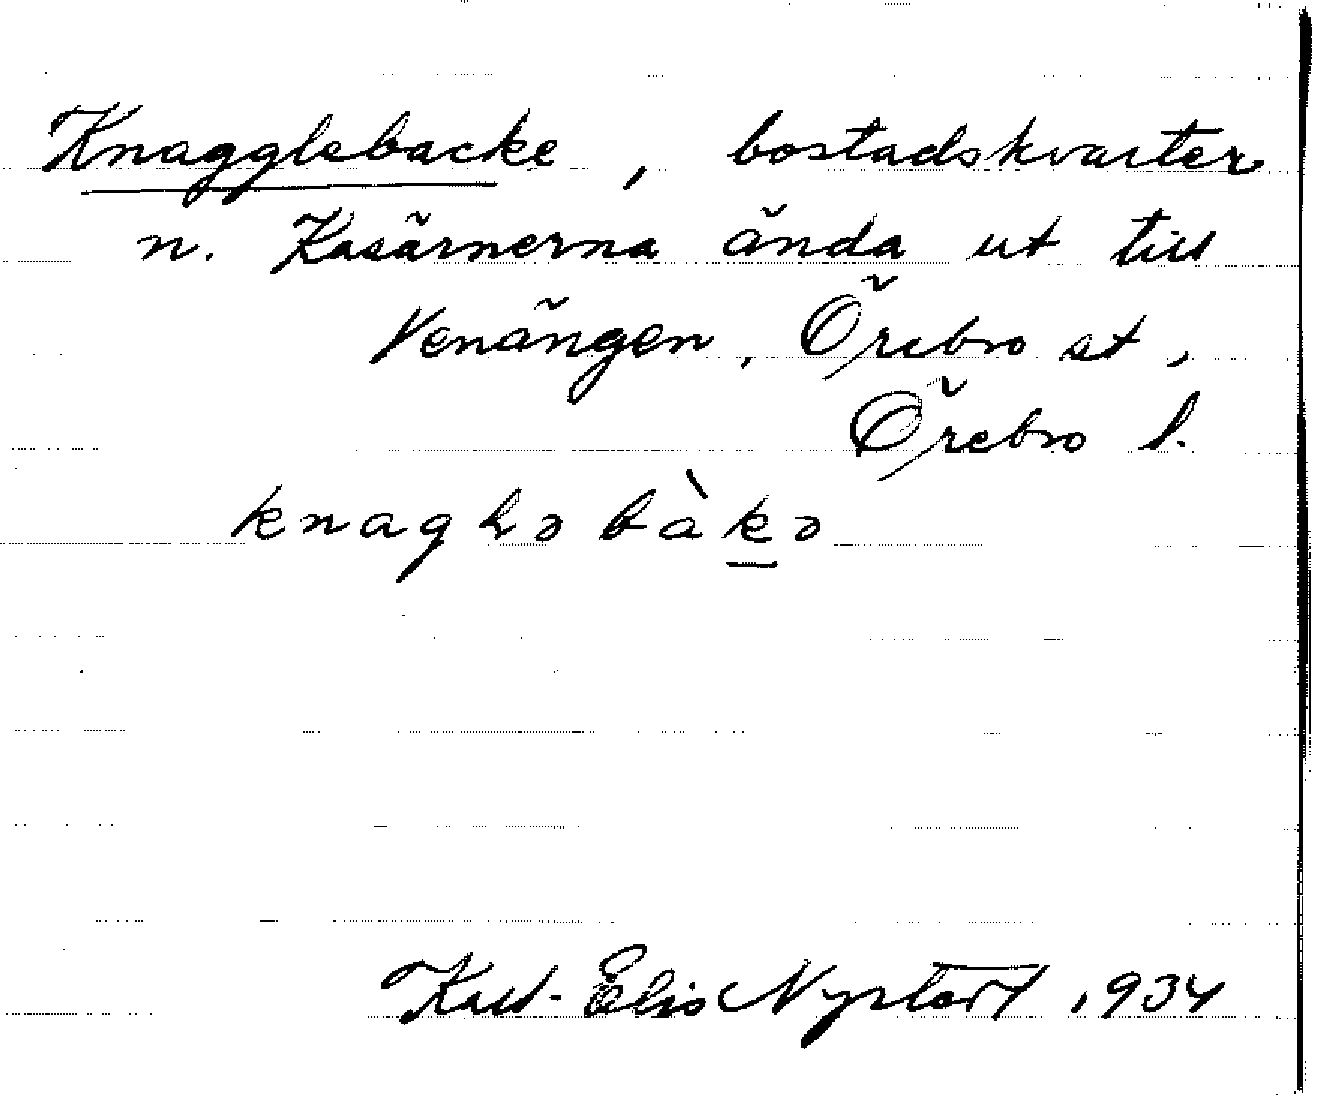 Knagglebacke, bostadskvarter
n. Kasärnerna ända ut till
Venängen, Örebro st,
Örebro l.
knagLə bàkə
Karl-Elis Nystart 1934